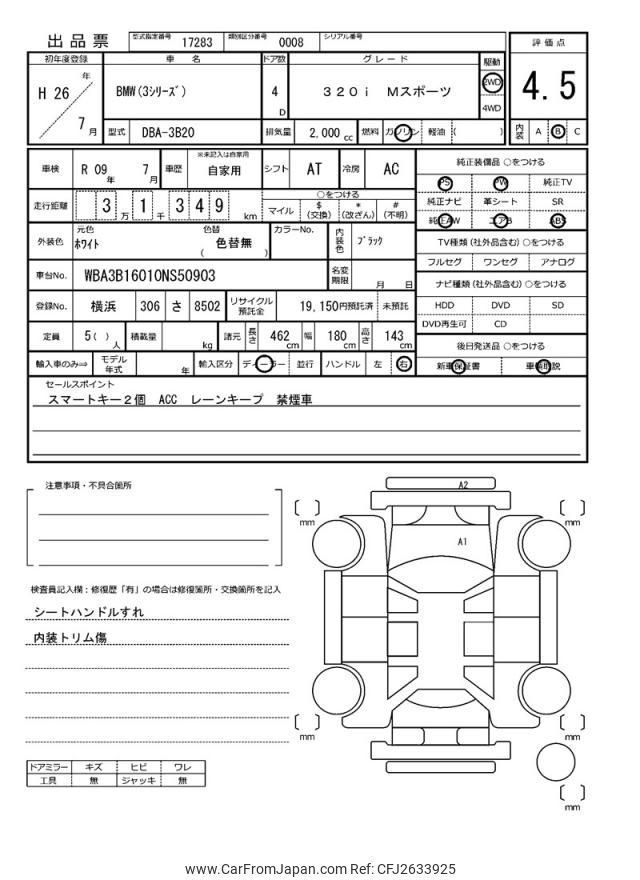 出品票 型式指定番号 17283 類別区分番号 0008 シリアル番号
初年度登録 車名 ドア数 グレード 駆動 評価点
H 26 年 7 月 BMW(3シリーズ) 4 D 320i Mスポーツ 2WD 4WD 4.5
型式 DBA-3B20 排気量 2,000 cc 燃料 ガソリン 軽油 ( ) 内装 A B C
車検 R 09 年 7 月 車歴 ※未記入は自家用 自家用 シフト AT 冷房 AC
走行距離 3 万 1 千 3 4 9 km ○をつける マイル $ (交換) * (改ざん) # (不明)
外装色 元色 ホワイト 色替 ( 色替無 ) カラーNo. 内装色 ブラック
車台No. WBA3B16010NS50903 名変期限 月 日
登録No. 横浜 306 さ 8502 リサイクル預託金 19,150円預託済 未預託
定員 5( ) 人 積載量 kg 諸元 長さ 462 cm 幅 180 cm 高さ 143 cm
輸入車のみ⇒ モデル年式 年 輸入区分 ディーラー 並行 ハンドル 左 右
純正装備品 ○をつける
PS PW 純正TV
純正ナビ 革シート SR
純正AW エアB ABS
TV種類(社外品含む)○をつける
フルセグ ワンセグ アナログ
ナビ種類(社外品含む)○をつける
HDD DVD SD
DVD再生可 CD
後日発送品 ○をつける
新車保証書 車輌取説
セールスポイント
スマートキー2個 ACC レーンキープ 禁煙車
注意事項・不具合箇所
検査員記入欄：修復歴「有」の場合は修復箇所・交換箇所を記入
シートハンドルすれ
内装トリム傷
ドアミラー キズ ヒビ ワレ
工具 無 ジャッキ 無
A2
A1
[ ] mm
[ ] mm
[ ] mm
[ ] mm
[ ] mm
www.CarFromJapan.com Ref: CFJ2633925